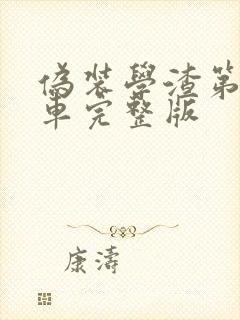 偽裝學渣第
車完整版
康濤